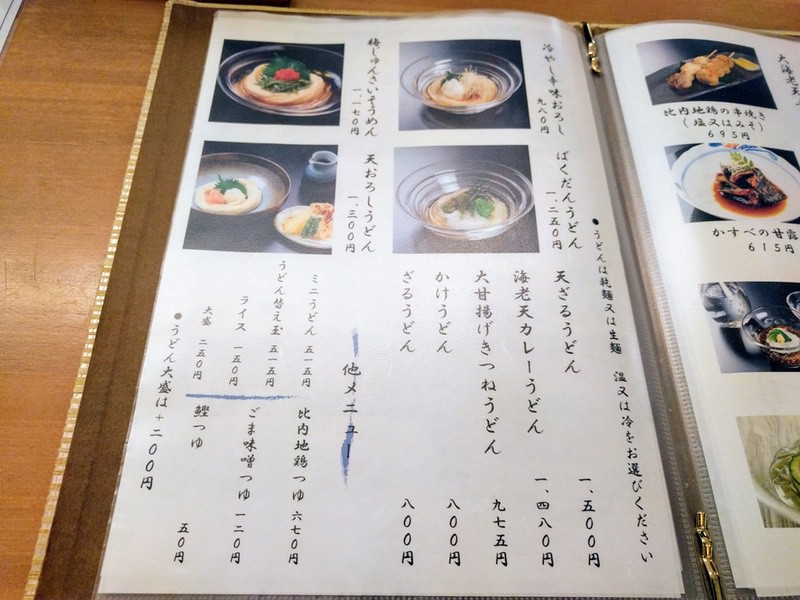 冷やし辛味おろし
九八〇円
梅じゅんさいそうめん
一、一七〇円
ばくだんうどん
一、二五〇円
天おろしうどん
一、三〇〇円
●うどんは乾麺又は生麺 温又は冷をお選びください
天ざるうどん 一、五〇〇円
海老天カレーうどん 一、四八〇円
大甘揚げきつねうどん 九七五円
かけうどん 八〇〇円
ざるうどん 八〇〇円
他メニュー
ミニうどん 五一五円
うどん替え玉 五一五円
ライス 一五〇円
大盛 二五〇円
比内地鶏つゆ 六七〇円
ごま味噌つゆ 一二〇円
鰹つゆ 五〇円
●うどん大盛は+二〇〇円
大海老天
比内地鶏の串焼き
(塩又はみそ)
695円
かすべの甘露
615円